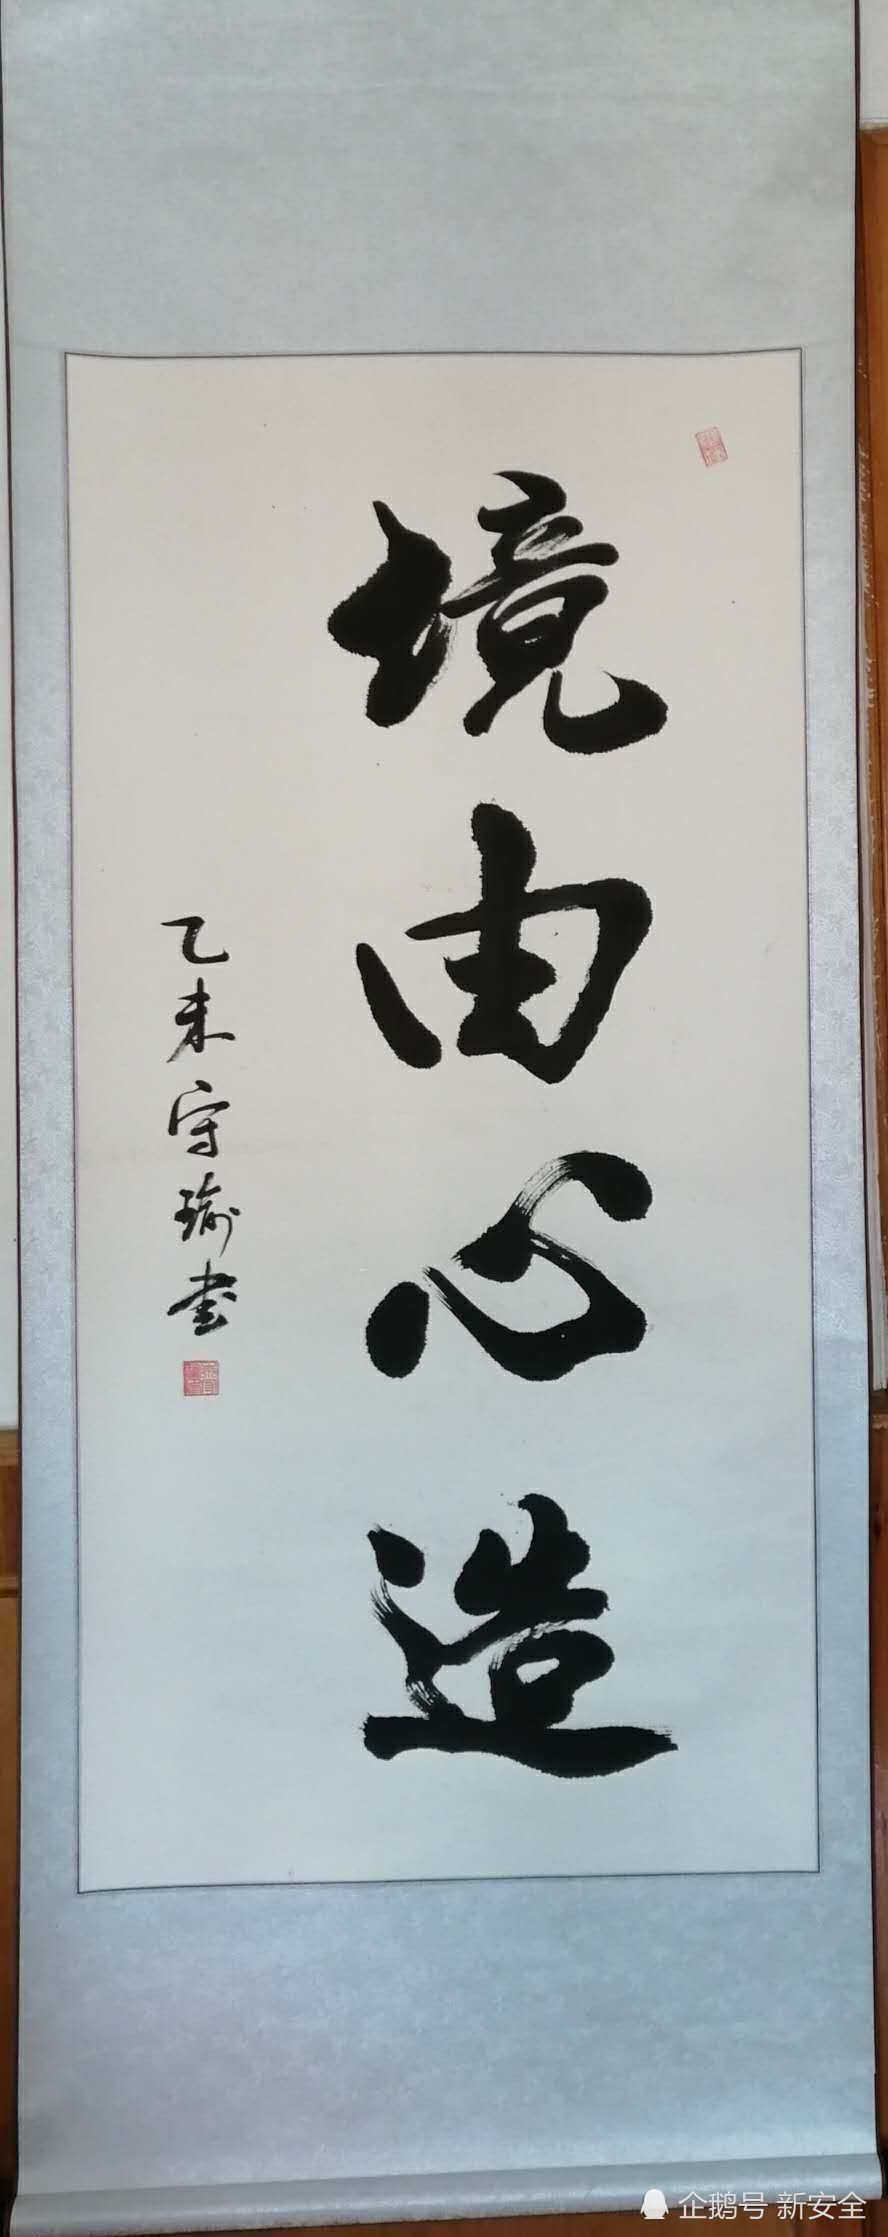 境由心造
乙未守瑜书
企鹅号 新安全